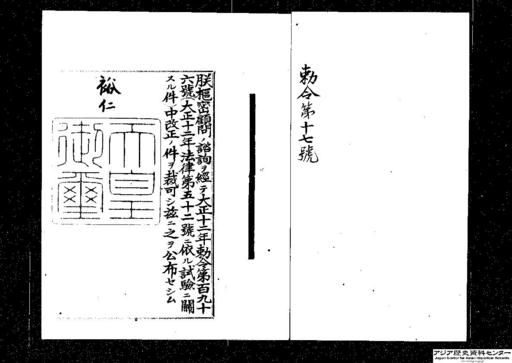 勅令第十七號
朕樞密顧問ノ諮詢ヲ經テ大正十二年勅令第百九十
六號大正十二年法律第五十二號ニ依ル試驗ニ關
スル件中改正ノ件ヲ裁可シ茲ニ之ヲ公布セシム
裕仁
天皇
御璽
アジア歴史資料センター
Japan Center for Asian Historical Records